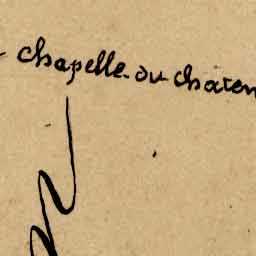 chapelle du chaten